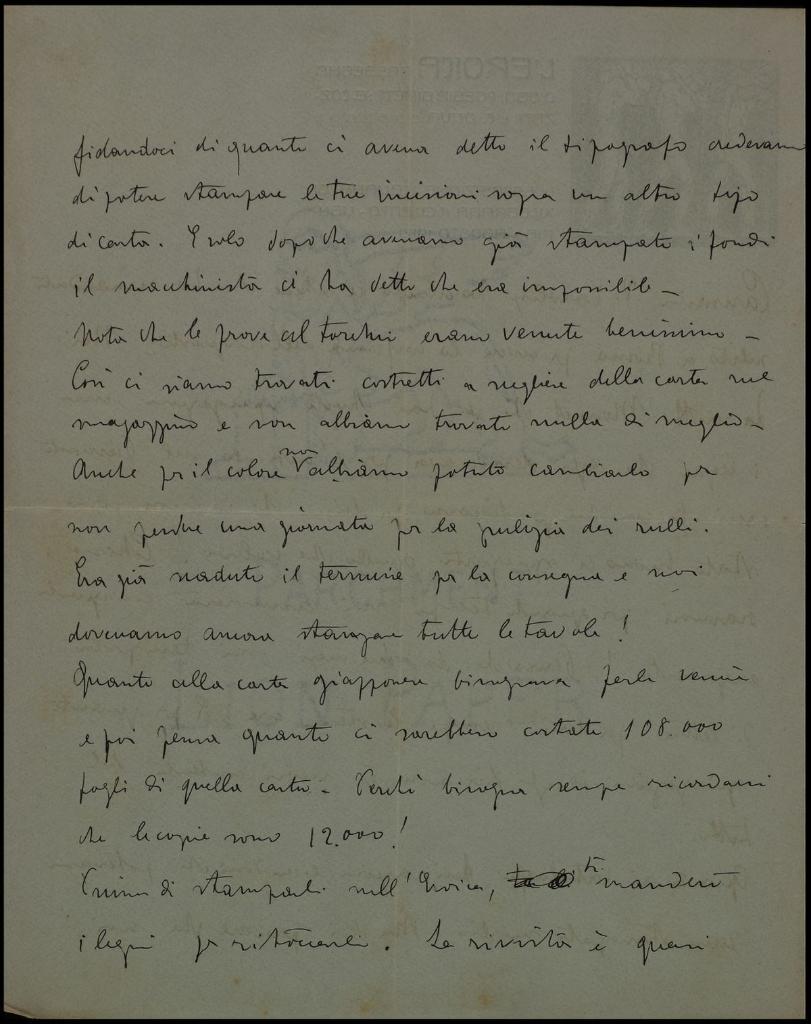 fidandoci di quanto ci aveva detto il tipografo credevamo
di potere stampare le tue incisioni sopra un altro tipo
di carta. E solo dopo che avevamo già stampato i fondi
il macchinista ci ha detto che era impossibile -
Nota che le prove al torchio erano venute benissimo -
Così ci siamo trovati costretti a scegliere della carta nel
magazzino e non abbiamo trovato nulla di meglio -
Anche per il colore non abbiamo potuto cambiarlo per
non perdere una giornata per la pulizia dei rulli.
Era già scaduto il termine per la consegna e noi
dovevamo ancora stampare tutte le tavole!
Quanto alla carta giapponese bisognava farla venire
e poi pensa quanto ci sarebbero costate 108.000
fogli di quella carta - Perché bisogna sempre ricordarsi
che le copie sono 12.000!
Prima di stamparli nell'Eroica, ti manderò
i legni per ritoccarli. La rivista è quasi
L'EROICA